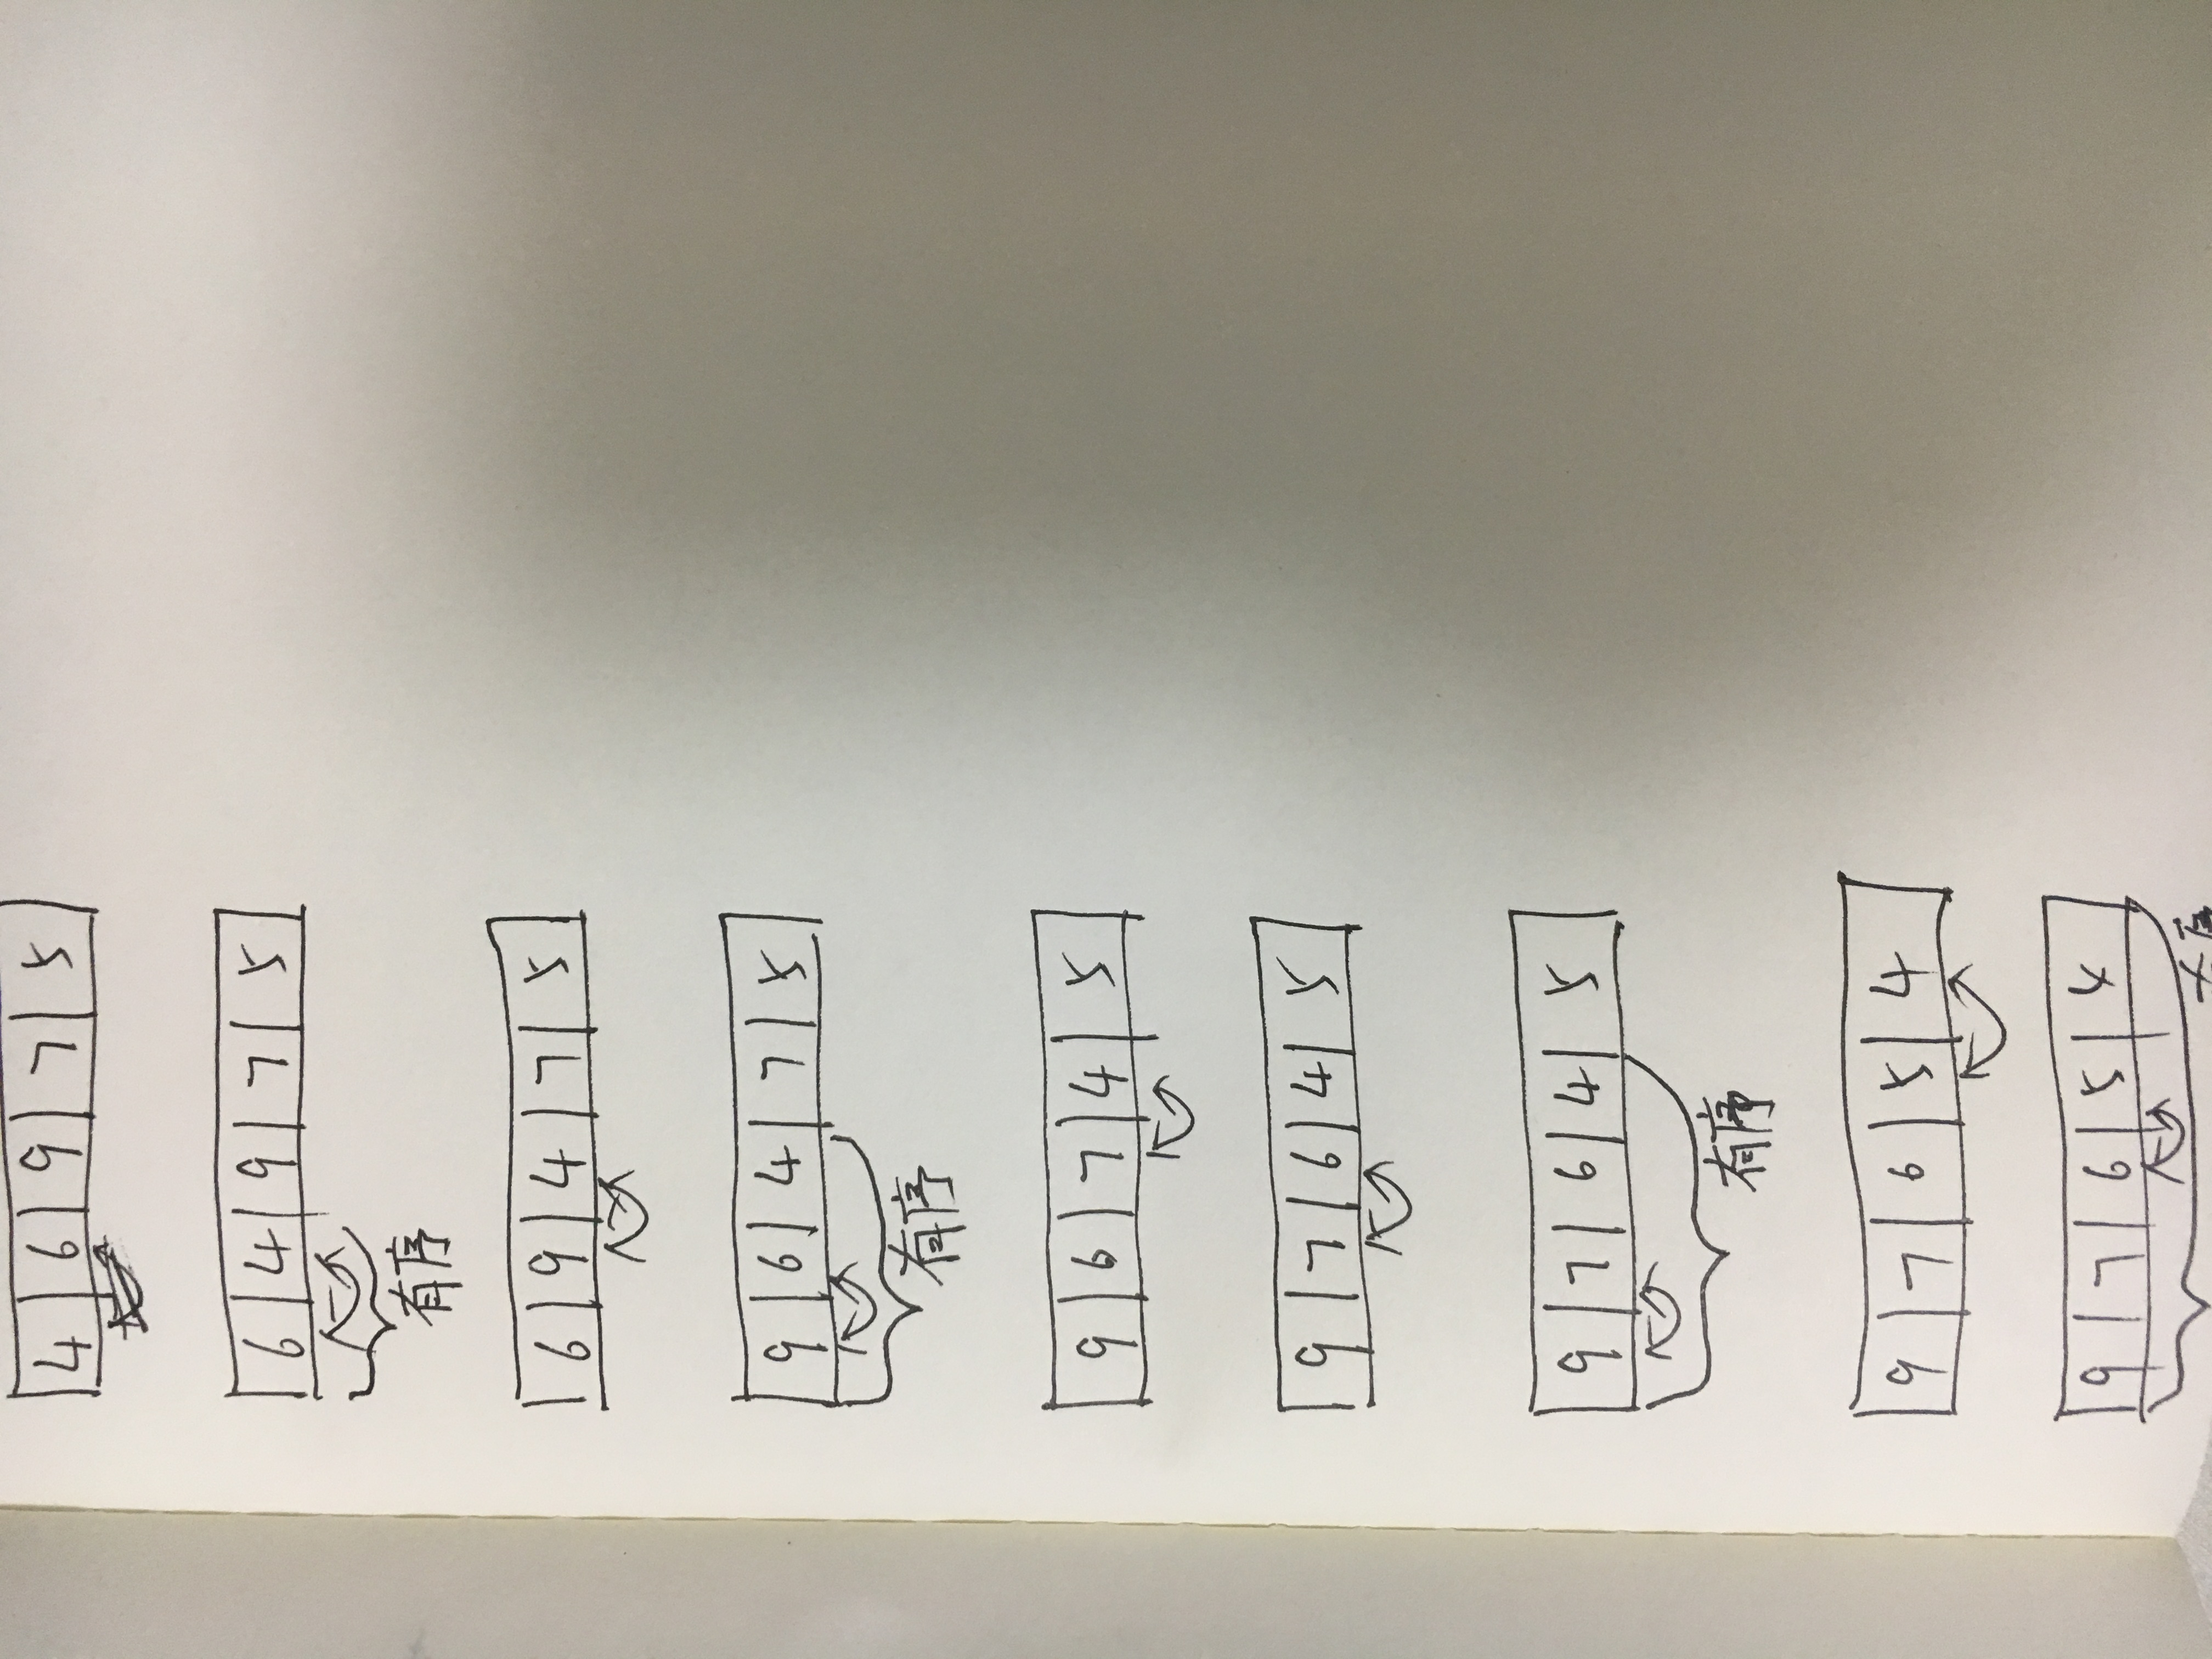 4 6 9 7 5
6 4 9 7 5
有序
6 9 4 7 5
9 6 4 7 5
有序
9 6 7 4 5
9 7 6 4 5
9 7 6 4 5
有序
9 7 6 5 4
9 7 6 5 4